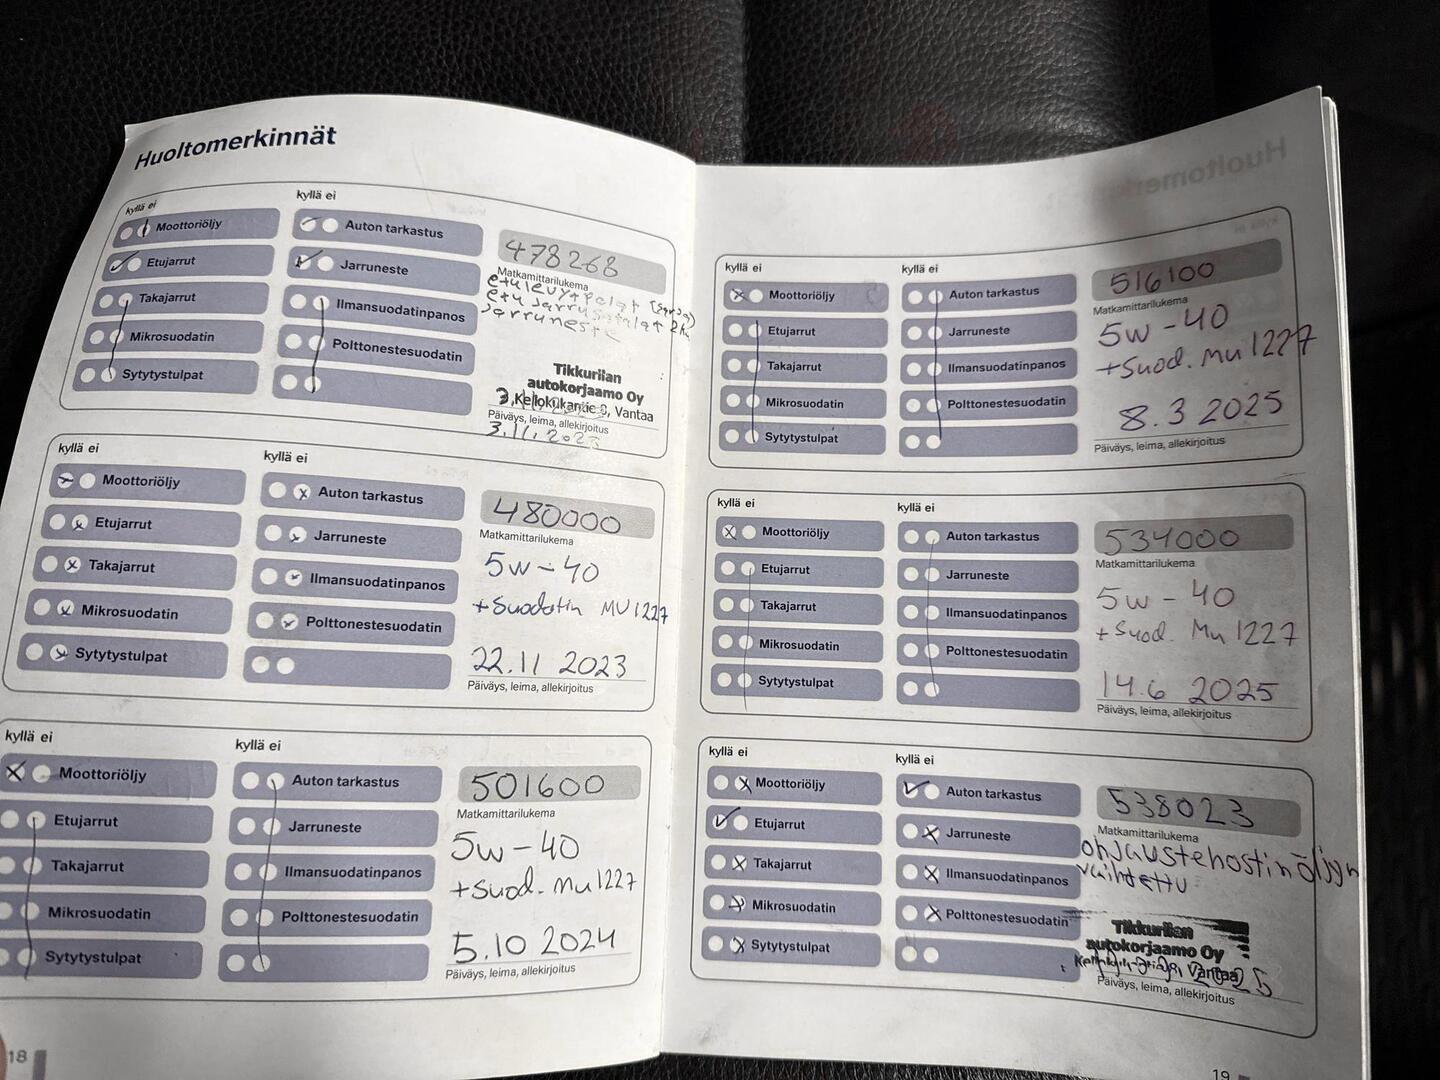 Huoltomerkinnät
kyllä ei
kyllä ei
Moottoriöljy
Etujarrut
Takajarrut
Mikrosuodatin
Sytytystulpat
Auton tarkastus
Jarruneste
Ilmansuodatinpanos
Polttonestesuodatin
478268
Matkamittarilukema
etulevyt+palat
etu jarrusatulat
Jarruneste
Tikkurilan
autokorjaamo Oy
Vantaa
Päiväys, leima, allekirjoitus
3.11.2023
kyllä ei
kyllä ei
Moottoriöljy
Etujarrut
Takajarrut
Mikrosuodatin
Sytytystulpat
Auton tarkastus
Jarruneste
Ilmansuodatinpanos
Polttonestesuodatin
480000
Matkamittarilukema
5w-40
+Suodatin MU1227
22.11 2023
Päiväys, leima, allekirjoitus
kyllä ei
kyllä ei
Moottoriöljy
Etujarrut
Takajarrut
Mikrosuodatin
Sytytystulpat
Auton tarkastus
Jarruneste
Ilmansuodatinpanos
Polttonestesuodatin
501600
Matkamittarilukema
5w-40
+Suod. Mu1227
5.10 2024
Päiväys, leima, allekirjoitus
18
kyllä ei
kyllä ei
Moottoriöljy
Etujarrut
Takajarrut
Mikrosuodatin
Sytytystulpat
Auton tarkastus
Jarruneste
Ilmansuodatinpanos
Polttonestesuodatin
516100
Matkamittarilukema
5w-40
+Suod. Mu1227
8.3 2025
Päiväys, leima, allekirjoitus
kyllä ei
kyllä ei
Moottoriöljy
Etujarrut
Takajarrut
Mikrosuodatin
Sytytystulpat
Auton tarkastus
Jarruneste
Ilmansuodatinpanos
Polttonestesuodatin
534000
Matkamittarilukema
5w-40
+Suod. Mu1227
14.6 2025
Päiväys, leima, allekirjoitus
kyllä ei
kyllä ei
Moottoriöljy
Etujarrut
Takajarrut
Mikrosuodatin
Sytytystulpat
Auton tarkastus
Jarruneste
Ilmansuodatinpanos
Polttonestesuodatin
538023
Matkamittarilukema
ohjaustehostinöljyn
vaihdettu
Tikkurilan
autokorjaamo Oy
Vantaa
2025
Päiväys, leima, allekirjoitus
19